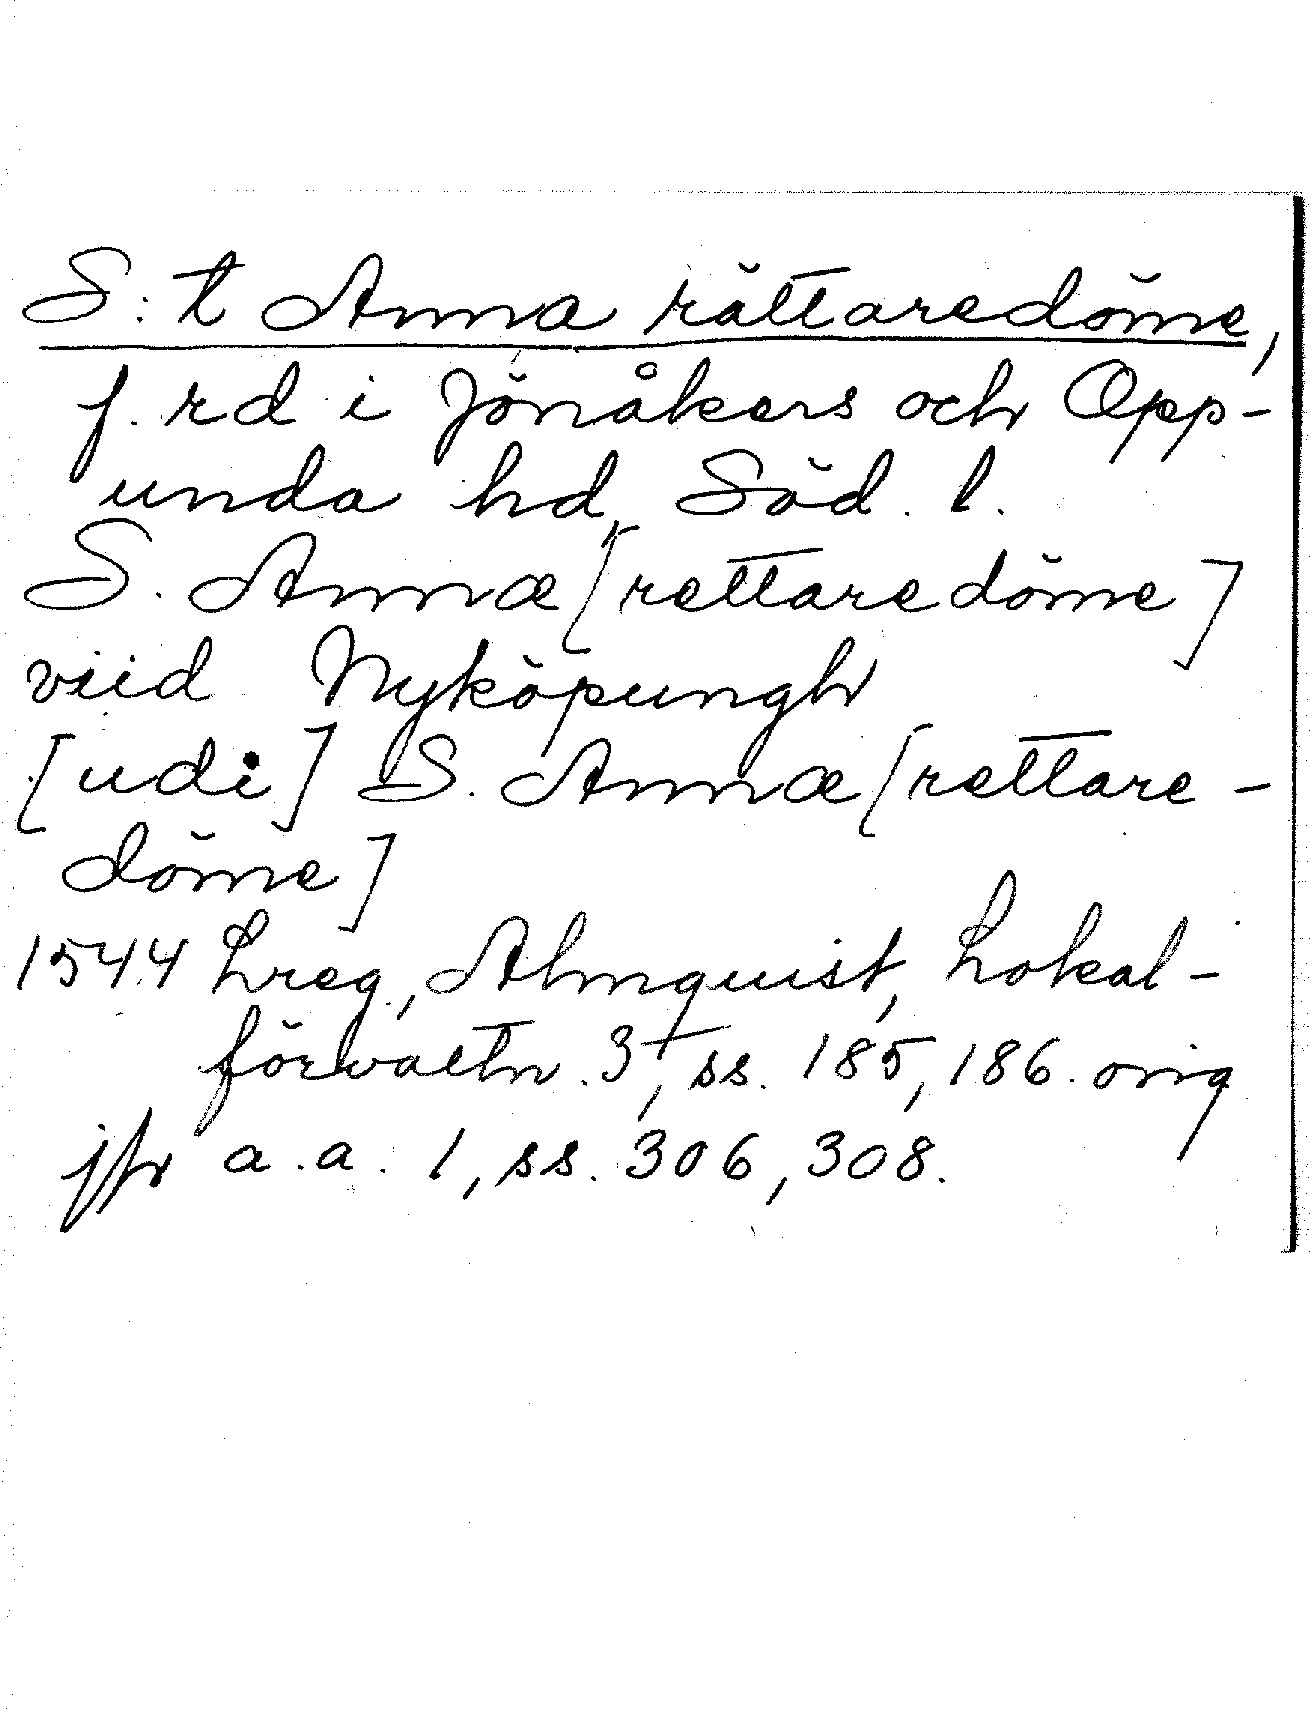 S:t Anna rättaredöme,
f. rd i Jönåkers och Opp-
unda hd, Söd. l.
S. Annæ [rettaredöme]
viid Nyköpungh
[udi] S. Annæ [rettare-
döme]
1544 Lreg., Almquist, Lokal-
förvaltn. 3, ss. 185, 186. orig
jfr a.a. 1, ss. 306, 308.